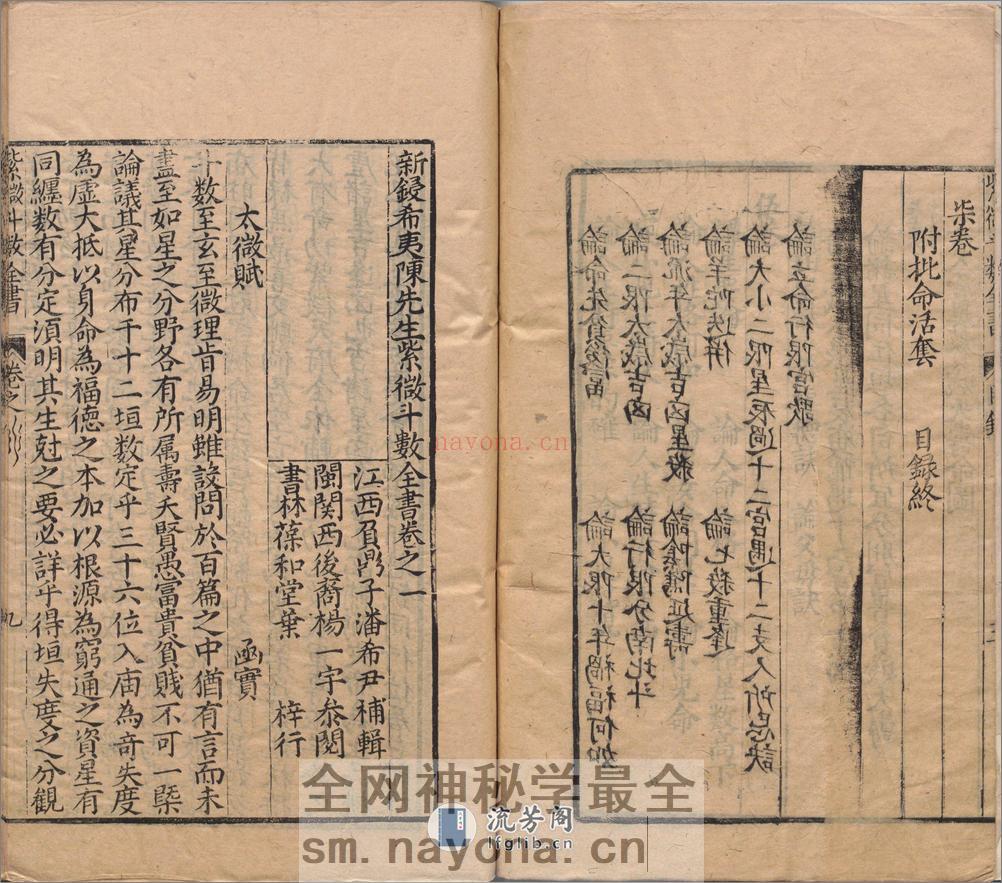 柒卷
附批命活套　目録終
論立命行限宮歌
論大小二限星辰過十二宮遇十二支人所忌訣
論羊陀迭併　論七殺重逢
論流年太歲吉凶星殺　論陰隲延壽
論二限太歲吉凶　論行限分南北斗
論命先貧後富　論大限十年禍福何如
新鋟希夷陳先生紫微斗數全書卷之一
江西負鼎子潘希尹補輯
閩関西後裔楊一宇叅閱
書林葆和堂葉　梓行
太微賦　函實
斗數至玄至微理旨易明雖設問於百篇之中猶有言而未
盡至如星之分野各有所属壽夭賢愚富貴貧賤不可一槩
論議其星分布十十二垣數定乎三十六位入庙為奇失度
為虛大抵以身命為福德之本加以根源為窮通之資星有
同纏数有分定湏明其生尅之要必詳乎得垣失度之分觀
紫微斗數全書　卷之一　九
nayona.cn
全网神秘学最全
流芳阁
lfglib.com
sm.nayona.cn